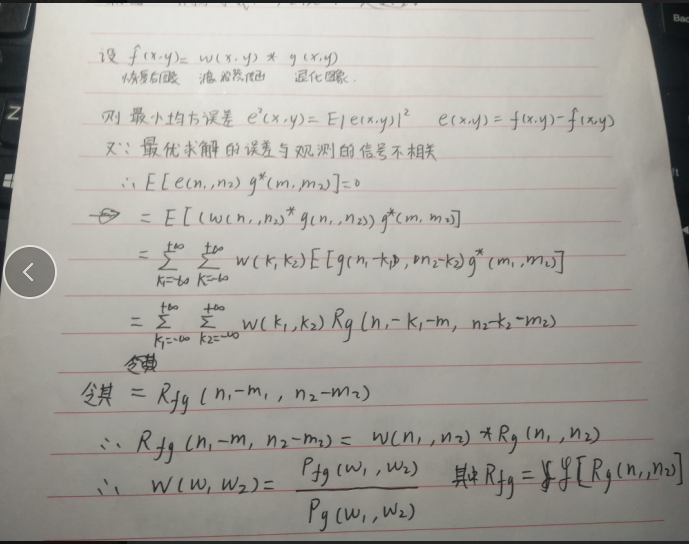 设 f̂(x,y) = w(x,y) * g(x,y)
恢复图像 滤波器 退化图象.
则 最小均方误差 e²(x,y) = E|e(x,y)|² e(x,y) = f(x,y) - f̂(x,y)
又∵ 最优求解的误差与观测的信号不相关
∴ E[e(n₁,n₂) g*(m₁m₂)] = 0
= E[(w(n₁,n₂)* g(n₁,n₂)) g*(m₁m₂)]
= Σ_{k₁=-∞}^{+∞} Σ_{k=-∞}^{+∞} w(k₁k₂) E[g(n₁-k₁, n₂-k₂) g*(m₁,m₂)]
= Σ_{k₁=-∞}^{+∞} Σ_{k₂=-∞}^{+∞} w(k₁,k₂) Rg(n₁-k₁-m, n₂-k₂-m₂)
令其 = Rfg(n₁-m₁, n₂-m₂)
∴ Rfg(n₁-m, n₂-m₂) = w(n₁,n₂) * Rg(n₁,n₂)
∴ W(w₁w₂) = Pfg(w₁,w₂) / Pg(w₁,w₂) 其中 Rfg = [Rg(n₁,n₂)]
Z
Bac